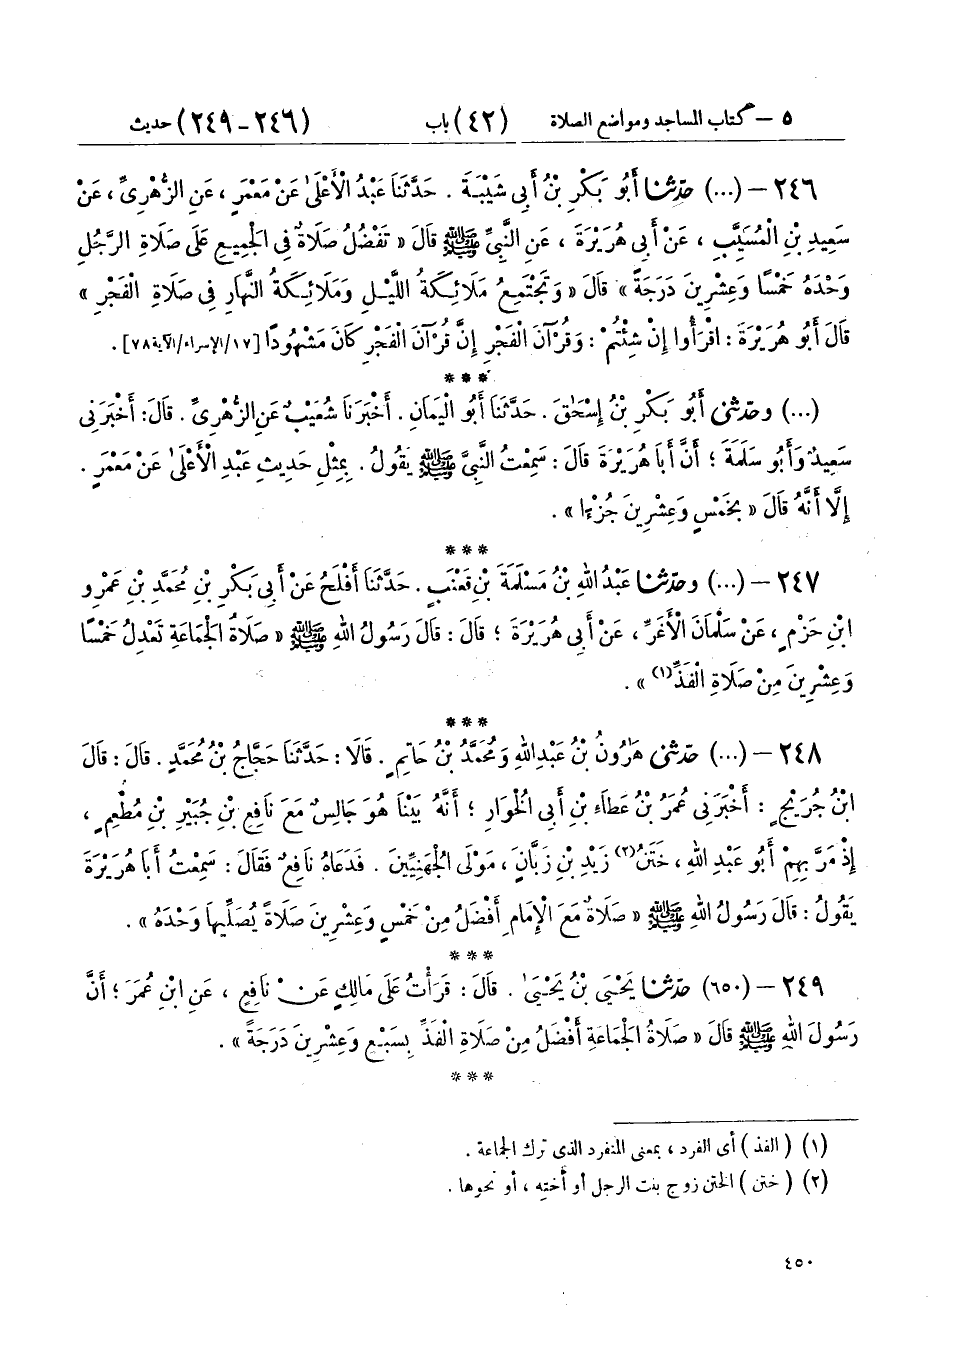 ٥ – كتاب المساجد ومواضع الصلاة (٤٢) باب (٢٤٦ – ٢٤٩) حديث
٢٤٦ – (...) حَدَّثَنَا أَبُو بَكْرِ بْنُ أَبِي شَيْبَةَ . حَدَّثَنَا عَبْدُ الْأَعْلَىٰ عَنْ مَعْمَرٍ ، عَنِ الزُّهْرِيِّ ، عَنْ
سَعِيدِ بْنِ الْمُسَيَّبِ ، عَنْ أَبِي هُرَيْرَةَ ، عَنِ النَّبِيِّ ﷺ قَالَ « تَفْضُلُ صَلَاةٌ فِي الْجَمِيعِ عَلَىٰ صَلَاةِ الرَّجُلِ
وَحْدَهُ خَمْسًا وَعِشْرِينَ دَرَجَةً » قَالَ « وَتَجْتَمِعُ مَلَائِكَةُ اللَّيْلِ وَمَلَائِكَةُ النَّهَارِ فِي صَلَاةِ الْفَجْرِ »
قَالَ أَبُو هُرَيْرَةَ : اقْرَأُوا إِنْ شِئْتُمْ : وَقُرْآنَ الْفَجْرِ إِنَّ قُرْآنَ الْفَجْرِ كَانَ مَشْهُودًا [١٧/الإسراء/الآية ٧٨] .
***
(...) وحَدَّثَنِي أَبُو بَكْرِ بْنُ إِسْحَٰقَ . حَدَّثَنَا أَبُو الْيَمَانِ . أَخْبَرَنَا شُعَيْبٌ عَنِ الزُّهْرِيِّ . قَالَ : أَخْبَرَنِي
سَعِيدٌ وَأَبُو سَلَمَةَ ؛ أَنَّ أَبَا هُرَيْرَةَ قَالَ : سَمِعْتُ النَّبِيَّ ﷺ يَقُولُ . بِمِثْلِ حَدِيثِ عَبْدِ الْأَعْلَىٰ عَنْ مَعْمَرٍ .
إِلَّا أَنَّهُ قَالَ « بِخَمْسٍ وَعِشْرِينَ جُزْءًا » .
***
٢٤٧ – (...) وحَدَّثَنَا عَبْدُ اللهِ بْنُ مَسْلَمَةَ بْنِ قَعْنَبٍ . حَدَّثَنَا أَفْلَحُ عَنْ أَبِي بَكْرِ بْنِ مُحَمَّدِ بْنِ عَمْرِو
ابْنِ حَزْمٍ ، عَنْ سَلْمَانَ الْأَغَرِّ ، عَنْ أَبِي هُرَيْرَةَ ؛ قَالَ : قَالَ رَسُولُ اللهِ ﷺ « صَلَاةُ الْجَمَاعَةِ تَعْدِلُ خَمْسًا
وَعِشْرِينَ مِنْ صَلَاةِ الْفَذِّ (١) » .
***
٢٤٨ – (...) حَدَّثَنِي هَٰرُونُ بْنُ عَبْدِ اللهِ وَمُحَمَّدُ بْنُ حَاتِمٍ . قَالَا : حَدَّثَنَا حَجَّاجُ بْنُ مُحَمَّدٍ . قَالَ : قَالَ
ابْنُ جُرَيْجٍ : أَخْبَرَنِي عُمَرُ بْنُ عَطَاءِ بْنِ أَبِي الْخُوَارِ ؛ أَنَّهُ بَيْنَا هُوَ جَالِسٌ مَعَ نَافِعِ بْنِ جُبَيْرِ بْنِ مُطْعِمٍ ،
إِذْ مَرَّ بِهِمْ أَبُو عَبْدِ اللهِ ، خَتَنُ (٢) زَيْدِ بْنِ زَبَّانَ ، مَوْلَى الْجُهَنِيِّينَ . فَدَعَاهُ نَافِعٌ فَقَالَ : سَمِعْتُ أَبَا هُرَيْرَةَ
يَقُولُ : قَالَ رَسُولُ اللهِ ﷺ « صَلَاةٌ مَعَ الْإِمَامِ أَفْضَلُ مِنْ خَمْسٍ وَعِشْرِينَ صَلَاةً يُصَلِّيهَا وَحْدَهُ » .
***
٢٤٩ – (٦٥٠) حَدَّثَنَا يَحْيَىٰ بْنُ يَحْيَىٰ . قَالَ : قَرَأْتُ عَلَىٰ مَالِكٍ عَنْ نَافِعٍ ، عَنِ ابْنِ عُمَرَ ؛ أَنَّ
رَسُولَ اللهِ ﷺ قَالَ « صَلَاةُ الْجَمَاعَةِ أَفْضَلُ مِنْ صَلَاةِ الْفَذِّ بِسَبْعٍ وَعِشْرِينَ دَرَجَةً » .
***
(١) ( الفذ ) أى الفرد ، بمعنى المنفرد الذى ترك الجماعة .
(٢) ( ختن ) الختن زوج بنت الرجل أو أخته ، أو نحوها .
٤٥٠